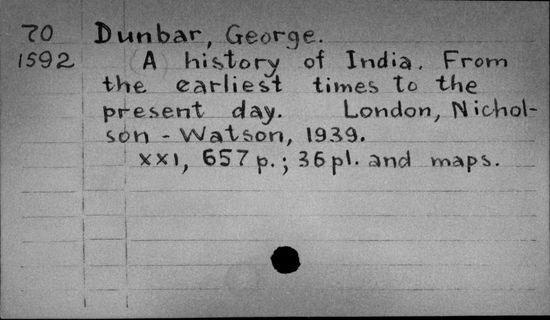 70 Dunbar, George.
1592 A history of India. From
the earliest times to the
present day. London, Nichol-
son - Watson, 1939.
XXI, 657 p.; 36 pl. and maps.